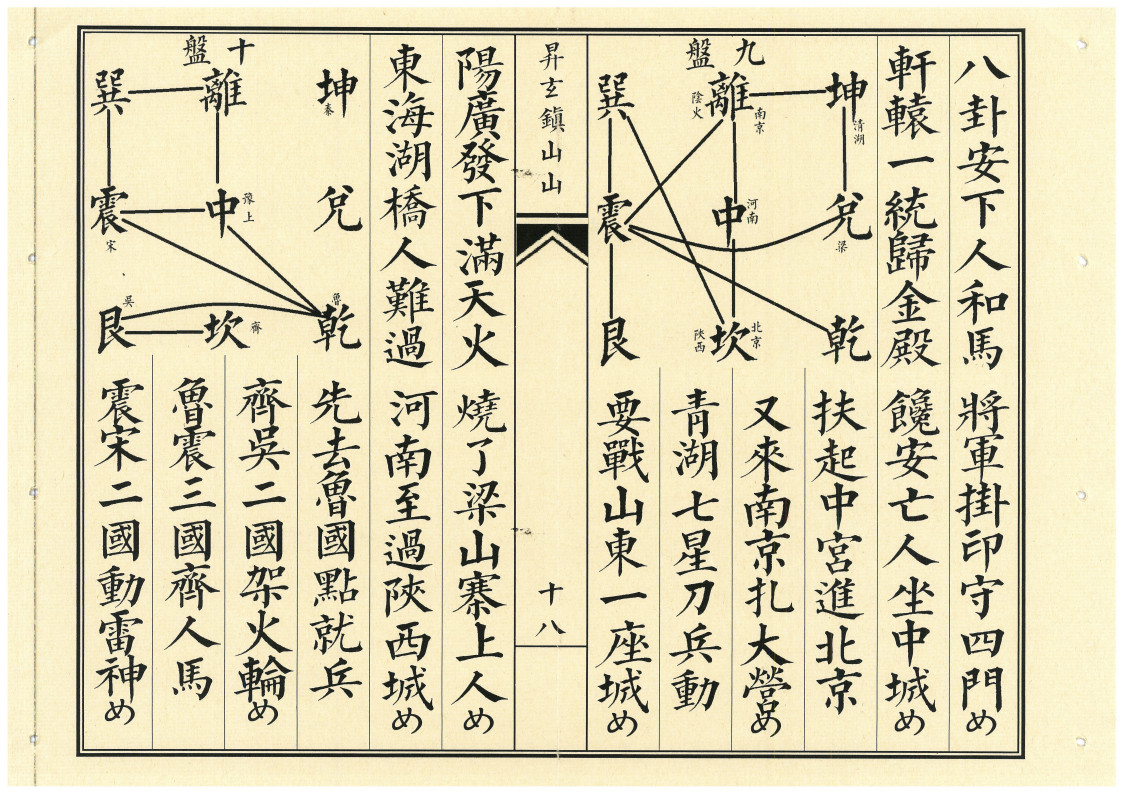 八卦安下人和馬 將軍掛印守四門め
軒轅一統歸金殿 饞安亡人坐中城め
九盤
坤 清湖
離 南京 陰火
巽
兌 梁
中 河南
震
乾
坎 北京 陝西
艮
扶起中宮進北京
又來南京扎大營め
青湖七星刀兵動
要戰山東一座城め
昇玄鎮山山
十八
陽廣發下滿天火 燒了梁山寨上人め
東海湖橋人難過 河南至過陝西城め
十盤
坤 秦
離
巽
兌
中 豫上
震 宋
乾 魯
坎 齊
艮 吳
先去魯國點就兵
齊吳二國架火輪め
魯震三國齊人馬
震宋二國動雷神め